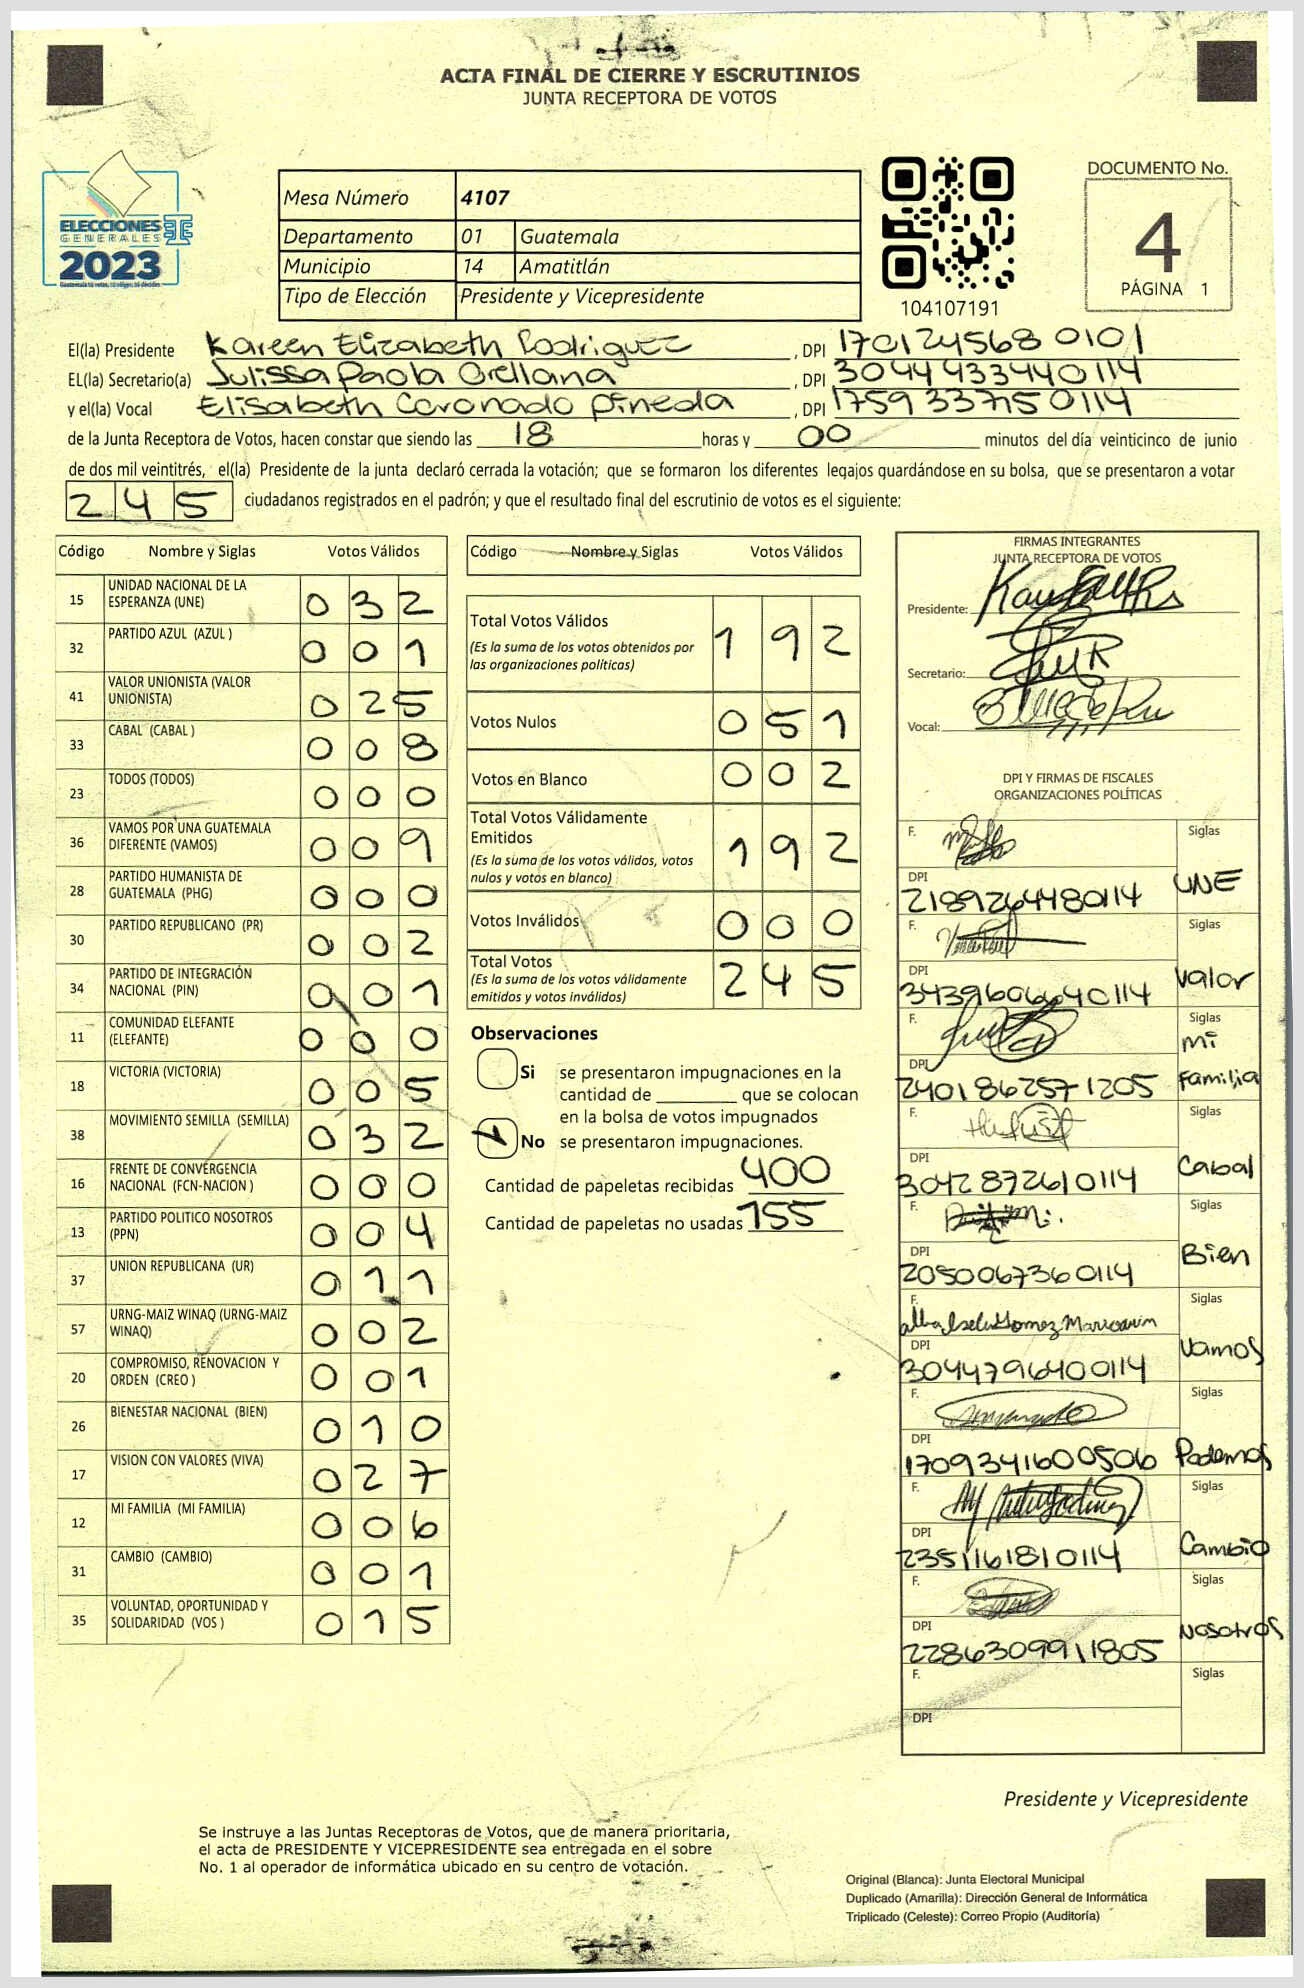 ACTA FINAL DE CIERRE Y ESCRUTINIOS
JUNTA RECEPTORA DE VOTOS
ELECCIONES
GENERALES
2023
Mesa Número 4107
Departamento 01 Guatemala
Municipio 14 Amatitlán
Tipo de Elección Presidente y Vicepresidente
104107191
DOCUMENTO No.
4
PÁGINA 1
El(la) Presidente Kareen Elizabeth Rodriguez , DPI 1701245680101
EL(la) Secretario(a) Julissa Paola Orellana , DPI 3044433440114
y el(la) Vocal Elisabeth Coronado Pineda , DPI 1759337150114
de la Junta Receptora de Votos, hacen constar que siendo las 18 horas y 00 minutos del día veinticinco de junio
de dos mil veintitrés, el(la) Presidente de la junta declaró cerrada la votación; que se formaron los diferentes legajos guardándose en su bolsa, que se presentaron a votar
245 ciudadanos registrados en el padrón; y que el resultado final del escrutinio de votos es el siguiente:
Código Nombre y Siglas Votos Válidos
15 UNIDAD NACIONAL DE LA ESPERANZA (UNE) 032
32 PARTIDO AZUL (AZUL ) 001
41 VALOR UNIONISTA (VALOR UNIONISTA) 025
33 CABAL (CABAL ) 008
23 TODOS (TODOS) 000
36 VAMOS POR UNA GUATEMALA DIFERENTE (VAMOS) 009
28 PARTIDO HUMANISTA DE GUATEMALA (PHG) 000
30 PARTIDO REPUBLICANO (PR) 002
34 PARTIDO DE INTEGRACIÓN NACIONAL (PIN) 001
11 COMUNIDAD ELEFANTE (ELEFANTE) 000
18 VICTORIA (VICTORIA) 005
38 MOVIMIENTO SEMILLA (SEMILLA) 032
16 FRENTE DE CONVERGENCIA NACIONAL (FCN-NACION ) 000
13 PARTIDO POLITICO NOSOTROS (PPN) 004
37 UNION REPUBLICANA (UR) 011
57 URNG-MAIZ WINAQ (URNG-MAIZ WINAQ) 002
20 COMPROMISO, RENOVACION Y ORDEN (CREO ) 001
26 BIENESTAR NACIONAL (BIEN) 010
17 VISION CON VALORES (VIVA) 027
12 MI FAMILIA (MI FAMILIA) 006
31 CAMBIO (CAMBIO) 001
35 VOLUNTAD, OPORTUNIDAD Y SOLIDARIDAD (VOS ) 015
Código Nombre y Siglas Votos Válidos
Total Votos Válidos 192
(Es la suma de los votos obtenidos por
las organizaciones políticas)
Votos Nulos 051
Votos en Blanco 002
Total Votos Válidamente
Emitidos 192
(Es la suma de los votos válidos, votos
nulos y votos en blanco)
Votos Inválidos 000
Total Votos 245
(Es la suma de los votos válidamente
emitidos y votos inválidos)
Observaciones
Si se presentaron impugnaciones en la
cantidad de ________ que se colocan
en la bolsa de votos impugnados
No se presentaron impugnaciones.
Cantidad de papeletas recibidas 400
Cantidad de papeletas no usadas 155
FIRMAS INTEGRANTES
JUNTA RECEPTORA DE VOTOS
Presidente:
Secretario:
Vocal:
DPI Y FIRMAS DE FISCALES
ORGANIZACIONES POLÍTICAS
F. Siglas
DPI UNE
2189264480114
F. Siglas
DPI Valor
3439606640114
F. Siglas
mi
DPI Familia
2401862571205
F. Siglas
DPI Cabal
3042872610114
F. Siglas
DPI Bien
2050067360114
F. Siglas
DPI Vamos
3044796400114
F. Siglas
DPI Podemos
1709341600506
F. Siglas
DPI Cambio
2351161810114
F. Siglas
DPI Nosotros
2286309911805
F. Siglas
DPI
Presidente y Vicepresidente
Se instruye a las Juntas Receptoras de Votos, que de manera prioritaria,
el acta de PRESIDENTE Y VICEPRESIDENTE sea entregada en el sobre
No. 1 al operador de informática ubicado en su centro de votación.
Original (Blanca): Junta Electoral Municipal
Duplicado (Amarilla): Dirección General de Informática
Triplicado (Celeste): Correo Propio (Auditoría)